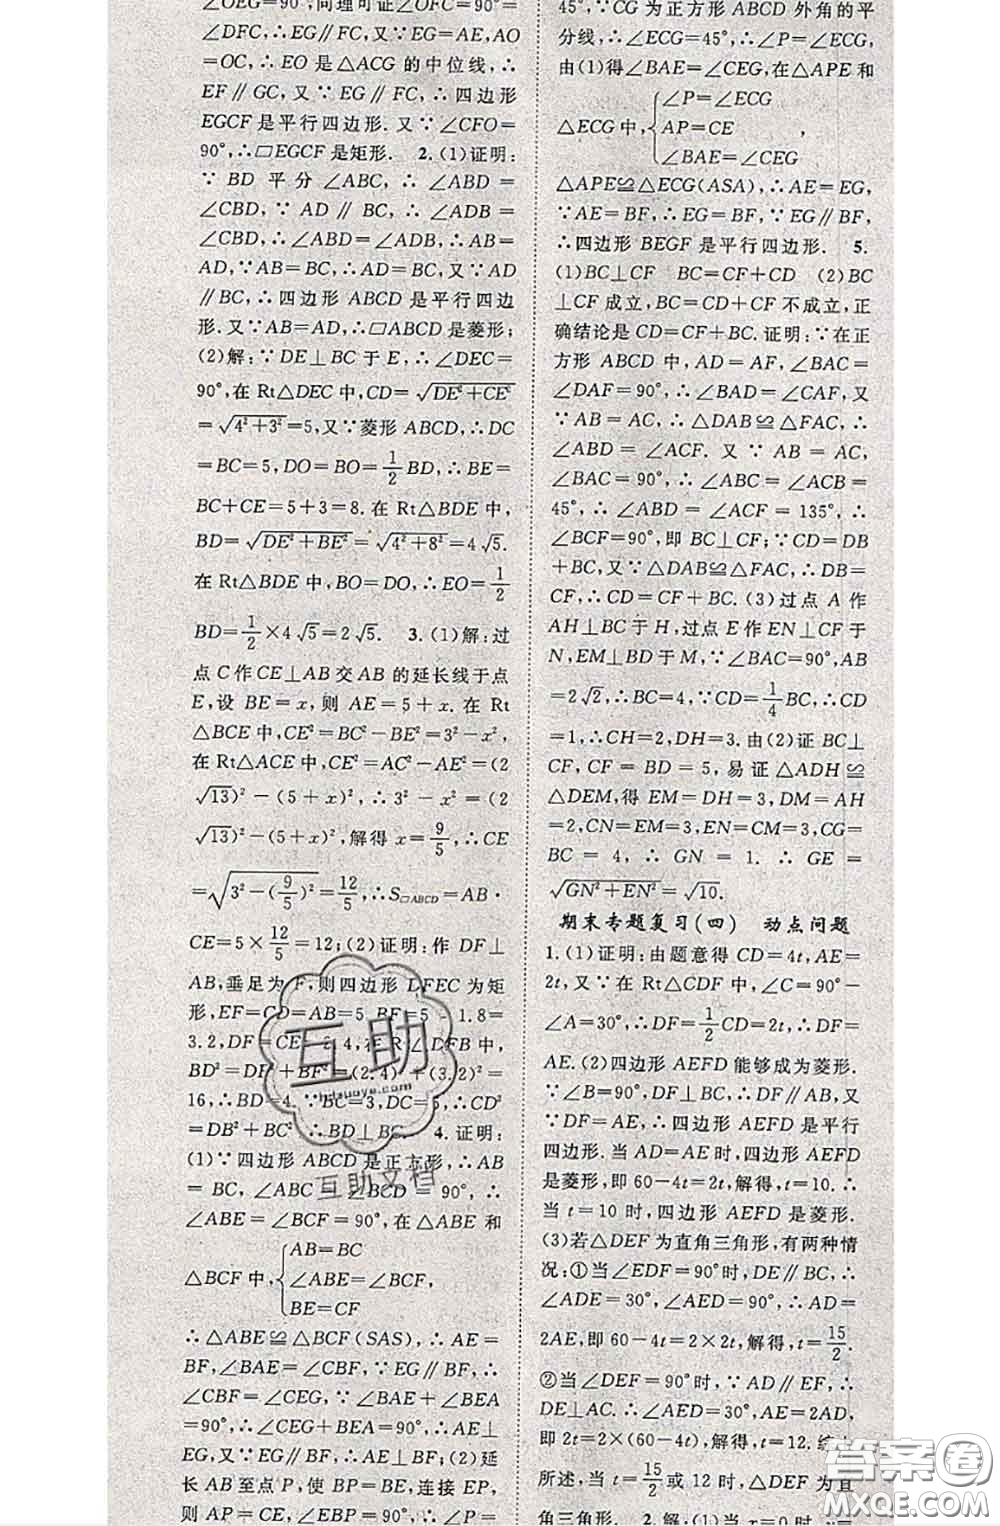 ∠OEG=90°,同理可证∠OFC=90°=
∠DFC,∴EG∥FC,又∵EG=AE,AO
=OC,∴EO是△ACG的中位线,∴
EF∥GC,又∵EG∥FC,∴四边形
EGCF是平行四边形.又∵∠CFO=
90°,∴□EGCF是矩形. 2.(1)证明:
∵BD平分∠ABC,∴∠ABD=
∠CBD,∵AD∥BC,∴∠ADB=
∠CBD,∴∠ABD=∠ADB,∴AB=
AD,∵AB=BC,∴AD=BC,又∵AD
∥BC,∴四边形ABCD是平行四边
形.又∵AB=AD,∴□ABCD是菱形;
(2)解:∵DE⊥BC于E,∴∠DEC=
90°,在Rt△DEC中,CD=√(DE²+CE²)
=√(4²+3²)=5,又∵菱形ABCD,∴DC
=BC=5,DO=BO=1/2BD,∴BE=
BC+CE=5+3=8.在Rt△BDE中,
BD=√(DE²+BE²)=√(4²+8²)=4√5.
在Rt△BDE中,BO=DO,∴EO=1/2
BD=1/2×4√5=2√5. 3.(1)解:过
点C作CE⊥AB交AB的延长线于点
E,设BE=x,则AE=5+x.在Rt
△BCE中,CE²=BC²-BE²=3²-x²,
在Rt△ACE中,CE²=AC²-AE²=(2
√13)²-(5+x)²,∴3²-x²=(2
√13)²-(5+x)²,解得x=9/5,∴CE
=√(3²-(9/5)²)=12/5,∴S□ABCD=AB·
CE=5×12/5=12;(2)证明:作DF⊥
AB,垂足为F,则四边形DFEC为矩
形,EF=CD=AB=5,BF=5-1.8=
3.2,DF=CE=2.4,在Rt△DFB中,
BD²=DF²+BF²=(2.4)²+(3.2)²=
16,∴BD=4.∵BC=3,DC=5,∴CD²
=DB²+BC²,∴BD⊥BC. 4.证明:
(1)∵四边形ABCD是正方形,∴AB
=BC,∠ABC=∠BCD=90°,∴
∠ABE=∠BCF=90°,在△ABE和
△BCF中,{AB=BC
∠ABE=∠BCF,
BE=CF
∴△ABE≌△BCF(SAS),∴AE=
BF,∠BAE=∠CBF,∵EG∥BF,∴
∠CBF=∠CEG,∵∠BAE+∠BEA
=90°,∴∠CEG+∠BEA=90°,∴AE⊥
EG,又∵EG∥BF,∴AE⊥BF;(2)延
长AB至点P,使BP=BE,连接EP,
则AP=CE,∠EBP=90°,∴∠P=
45°,∵CG为正方形ABCD外角的平
分线,∴∠ECG=45°,∴∠P=∠ECG,
由(1)得∠BAE=∠CEG,在△APE和
△ECG中,{∠P=∠ECG
AP=CE,
∠BAE=∠CEG
△APE≌△ECG(ASA),∴AE=EG,
∵AE=BF,∴EG=BF,∵EG∥BF,
∴四边形BEGF是平行四边形. 5.
(1)BC⊥CF BC=CF+CD (2)BC
⊥CF成立,BC=CD+CF不成立,正
确结论是CD=CF+BC.证明:∵在正
方形ABCD中,AD=AF,∠BAC=
∠DAF=90°,∴∠BAD=∠CAF,又
∵AB=AC,∴△DAB≌△FAC,∴
∠ABD=∠ACF.又∵AB=AC,
∠BAC=90°,∴∠ABC=∠ACB=
45°,∴∠ABD=∠ACF=135°,∴
∠BCF=90°,即BC⊥CF;∵CD=DB
+BC,又∵△DAB≌△FAC,∴DB=
CF,∴CD=CF+BC.(3)过点A作
AH⊥BC于H,过点E作EN⊥CF于
N,EM⊥BD于M,∵∠BAC=90°,AB
=2√2,∴BC=4,∵CD=1/4BC,∴CD
=1,∴CH=2,DH=3.由(2)证BC⊥
CF,CF=BD=5,易证△ADH≌
△DEM,得EM=DH=3,DM=AH
=2,CN=EM=3,EN=CM=3,CG=
BC=4,∴GN=1.∴GE=
√(GN²+EN²)=√10.
期末专题复习(四) 动点问题
1.(1)证明:由题意得CD=4t,AE=
2t,又∵在Rt△CDF中,∠C=90°-
∠A=30°,∴DF=1/2CD=2t,∴DF=
AE.(2)四边形AEFD能够成为菱形.
∵∠B=90°,DF⊥BC,∴DF∥AB,又
∵DF=AE,∴四边形AEFD是平行
四边形.当AD=AE时,四边形AEFD
是菱形,即60-4t=2t,解得,t=10.∴
当t=10时,四边形AEFD是菱形.
(3)若△DEF为直角三角形,有两种情
况:①当∠EDF=90°时,DE∥BC,∴
∠ADE=30°,∠AED=90°,∴AD=
2AE,即60-4t=2×2t,解得,t=15/2.
②当∠DEF=90°时,∵AD∥EF,∴
DE⊥AC.∴∠AED=30°,AE=2AD,
即2t=2×(60-4t),解得,t=12.综上
所述,当t=15/2或12时,△DEF为直
角三角形. 2.解:(1)当x=0时,y=
互助
互助文档
答案圈
MXQE.COM